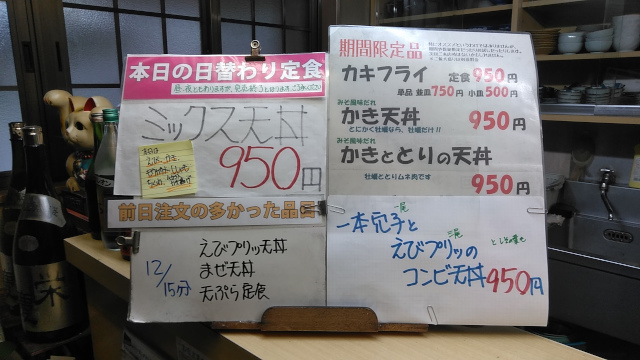 本日の日替わり定食
ミックス天丼
950円
前日注文の多かった品目
12/15分
えびプリッ天丼
まぜ天丼
天ぷら定食
期間限定品
カキフライ 定食950円
単品 並皿750円 小皿500円
みそ風味だれ
かき天丼 950円
とにかく牡蠣なら、牡蠣だけ!!
みそ風味だれ
かきととりの天丼
牡蠣ととりムネ肉です
950円
一本穴子と
えびプリッの
コンビ天丼950円